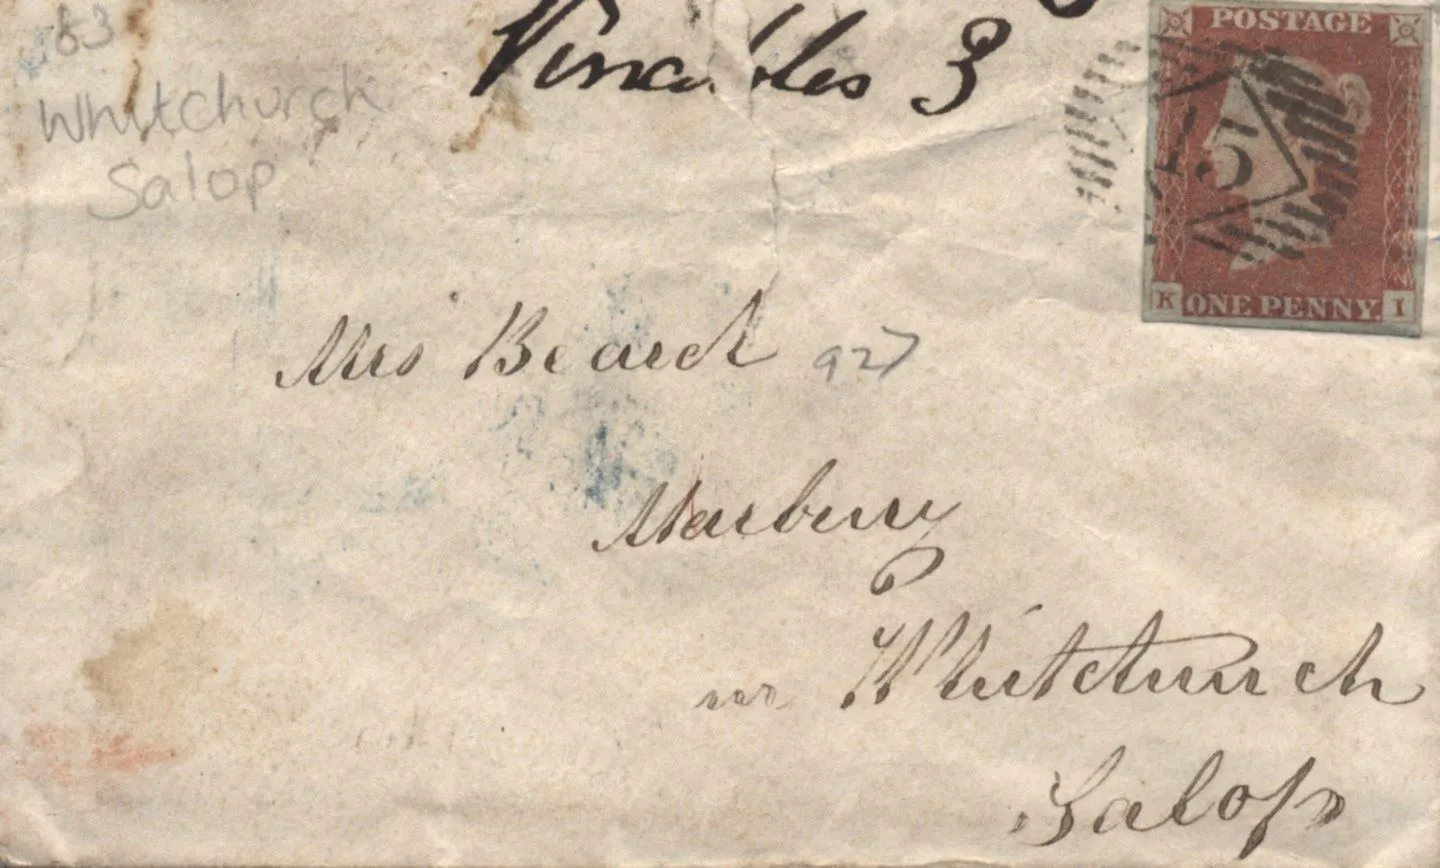 83
Whitchurch
Salop
3
POSTAGE
15
K ONE PENNY. I
Mrs Beard 927
Marbury
nr Whitchurch
Salop